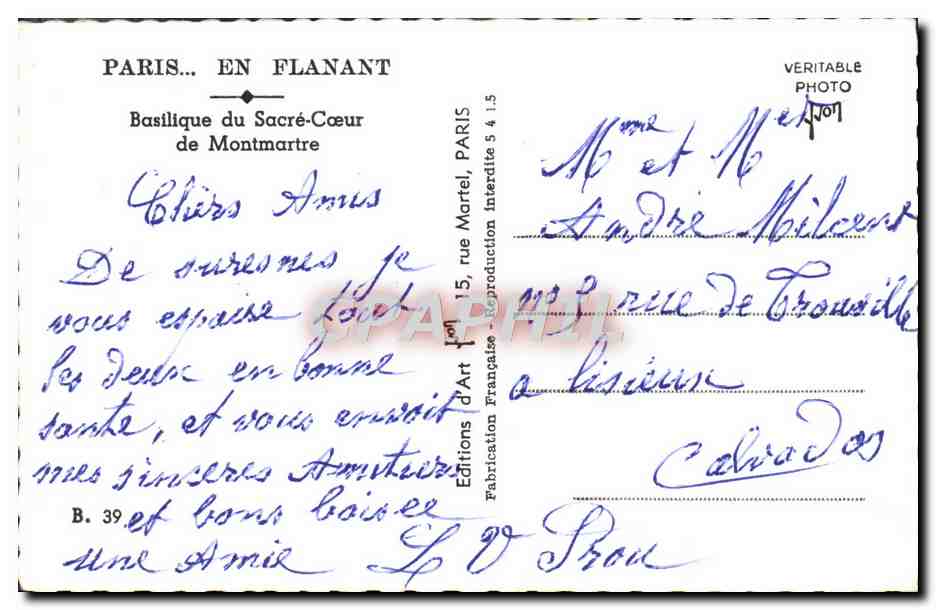 PARIS... EN FLANANT
Basilique du Sacré-Cœur
de Montmartre
Chèrs Amis
De suresnes je
vous espaire tout
les deux en bonne
sante, et vous envoit
mes sinceres Amitiers
et bons baisee
une Amie L V Prou
B. 39
Editions d'Art Yvon 15, rue Martel, PARIS
Fabrication Française - Reproduction interdite 5 4 1.5
VERITABLE
PHOTO
Yvon
Mme et Mer
André Milcent
n° 9 rue de Trouville
a lisieux
Calvados
SPAPHIL